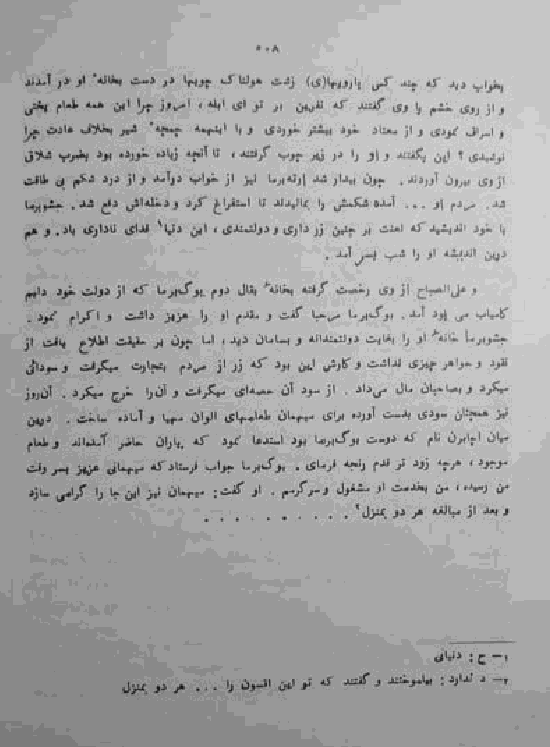 ۵۰۸
بخواب دید که چند کس پارویها(ی) زشت هولناک چوبها در دست بخانهٔ او در آمدند
و از روی خشم با وی گفتند که نفرین بر تو ای ابله، امروز چرا این همه طعام پختی
و اسراف نمودی و از معتاد خود بیشتر خوردی و با اینهمه چمچهٔ شیر بخلاف عادت چرا
نوشیدی؟ این بگفتند و او را در زیر چوب گرفتند، تا آنچه زیاده خورده بود بضرب شلاق
از وی بیرون آوردند. چون بیدار شد ارته‌برما نیز از خواب درآمد و از درد شکم بی طاقت
شد. مردم او ... آمده شکمش را بمالیدند تا استفراغ کرد و دخله‌اش دفع شد. جشوبرما
با خود اندیشید که لعنت بر چنین زر داری و دولتمندی، این دنیا۱ فدای ناداری باد. و هم
درین اندیشه او را شب بسر آمد.
و علی‌الصباح از وی رخصت گرفته بخانهٔ بقال دوم بوگ‌برما که از دولت خود دایم
کامیاب می بود آمد. بوگ‌برما مرحبا گفت و مقدم او را عزیز داشت و اکرام نمود.
جشوبرما خانهٔ او را بغایت دولتمندانه و بسامان دید، اما چون بر حقیقت اطلاع یافت از
نقود و جواهر چیزی نداشت و کارش این بود که زر از مردم بتجارت میگرفت و سودائی
میکرد و بصاحبان مال می‌داد. از سود آن حصه‌ای میگرفت و آن‌را خرج میکرد. آن‌روز
نیز همچنان سودی بدست آورده برای میهمان طعامهای الوان مهیا و آماده ساخت. درین
میان اچابرن نام که دوست بوگ‌برما بود استدعا نمود که یاران حاضر آمده‌اند و طعام
موجود، هرچه زود تر قدم رنجه فرمای. بوگ‌برما جواب فرستاد که میهمانی عزیز بسر وقت
من رسیده، من بخدمت او مشغول و سرگرمم. او گفت: میهمان نیز این جا را گرامی سازد
و بعد از مبالغه هر دو بمنزل۲ . . . . . . . . . .
۱- ح: دنیای
۲- د ندارد: بیاموختند و گفتند که تو این افسون را ... هر دو بمنزل